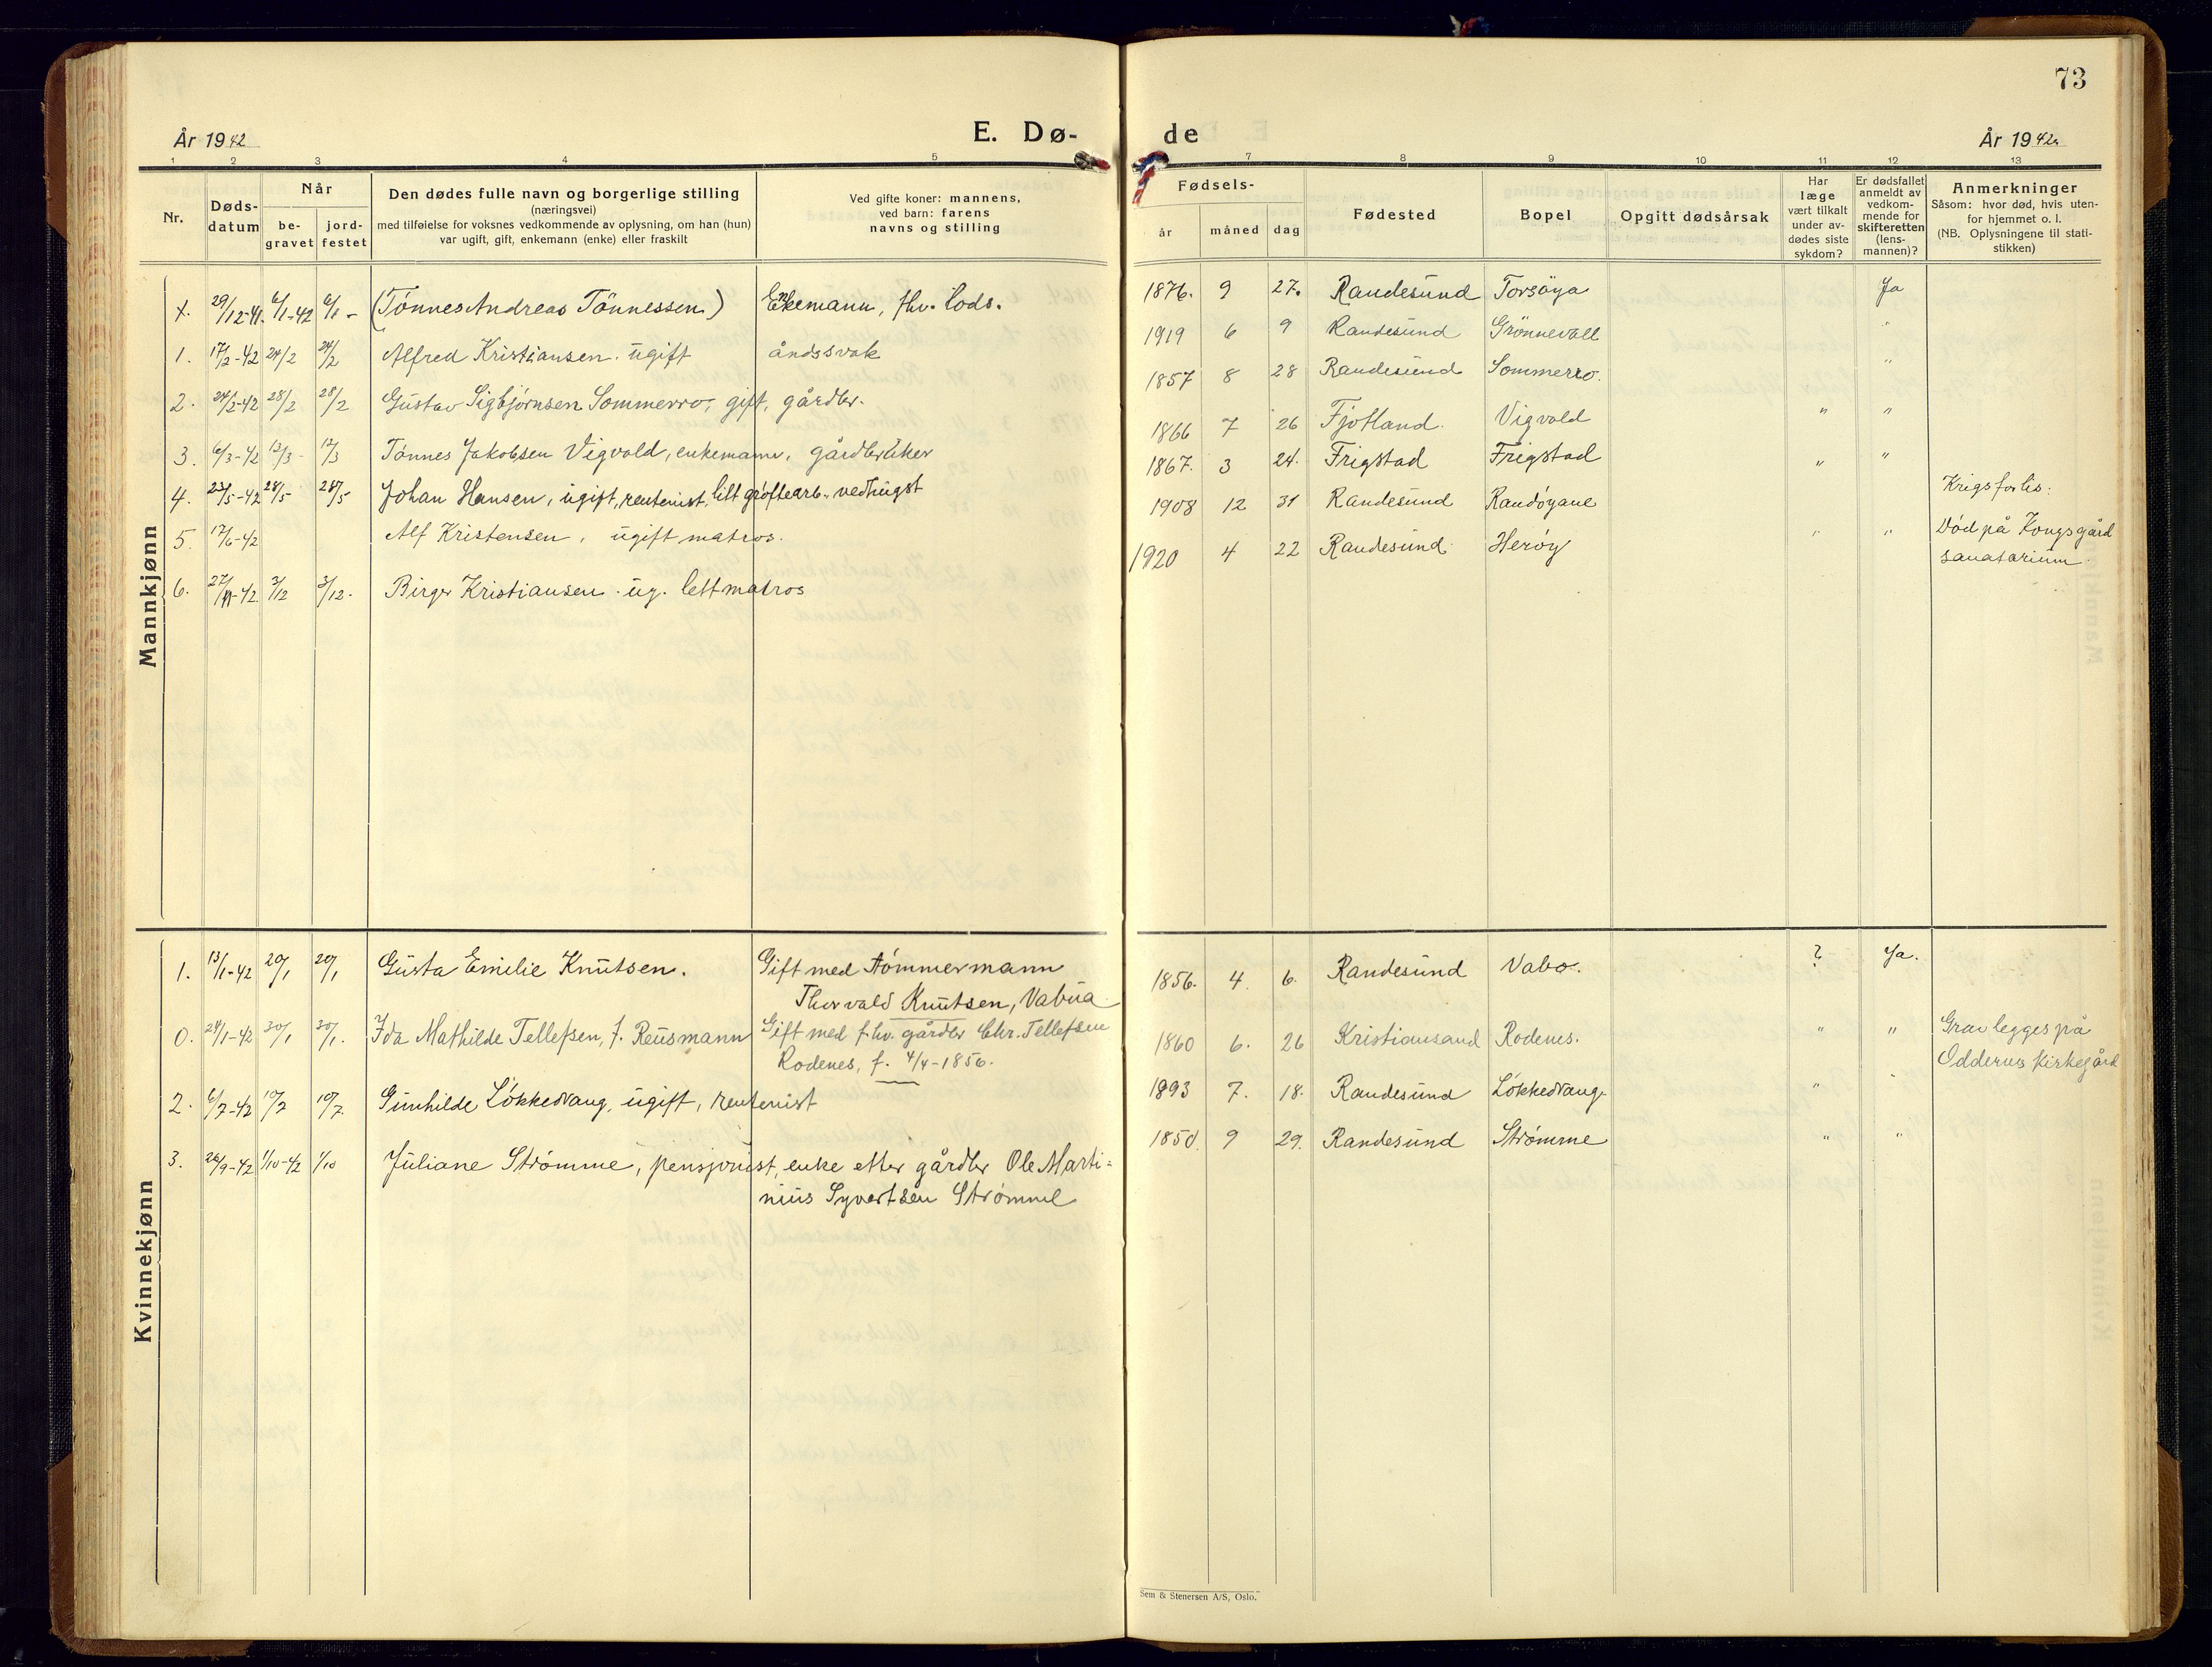 73
År 1942
E. Dø-
de
År 1942.
1 2 3 4 5 7 8 9 10 11 12 13
Nr.
Døds-
datum
Når
be-
gravet
jord-
festet
Den dødes fulle navn og borgerlige stilling
(næringsvei)
med tilføielse for voksnes vedkommende av oplysning, om han (hun)
var ugift, gift, enkemann (enke) eller fraskilt
Ved gifte koner: mannens,
ved barn: farens
navns og stilling
Fødsels-
år
måned
dag
Fødested
Bopel
Opgitt dødsårsak
Har
læge
vært tilkalt
under av-
dødes siste
sykdom?
Er dødsfallet
anmeldt av
vedkom-
mende for
skifteretten
(lens-
mannen)?
Anmerkninger
Såsom: hvor død, hvis uten-
for hjemmet o. l.
(NB. Oplysningene til stati-
stikken)
Mannkjønn
x. 29/12-41. 6/1-42 6/1- (Tönnes Andreas Tönnessen) Enkemann, fhv. lods. 1876. 9 27. Randesund Torsöya Ja
1. 17/2-42 24/2 24/2 Alfred Kristiansen. ugift åndssvak 1919 6 9 Randesund Grönnevoll "
2. 24/2-42 28/2 28/2 Gustav Sigbjørnsen Sommerro, gift, gårdbr. 1857 8 28 Randesund Sommerro. "
3. 6/3-42 12/3- 12/3 Tönnes Jakobsen Vigvold, enkemann, gårdbruker 1866 7 26 Fjotland. Vigvold " "
4. 23/5-42 28/5- 28/5 Johan Hansen, ugift, rentenist, litt grøftearb., vedhugst 1867. 3 24. Frigstad Frigstad " "
5. 17/6-42 Alf Kristensen, ugift matros. 1908 12 31 Randesund Randøyane Krigsforlis.
6. 27/11-42. 3/12 3/12- Birger Kristiansen. ug. lettmatros 1920 4 22 Randesund Herøy " " Død på Kongsgård
sanatorium.
Kvinnekjønn
1. 13/1-42 20/1 20/1 Gusta Emilie Knutsen. Gift med tømmermann 1856. 4. 6. Randesund Vabo. ? Ja.
Thorvald Knutsen, Vabua
0. 24/1-42 30/1 30/1. Ida Mathilde Tellefsen, f. Reusmann Gift med fhv. gårdbr Chr. Tellefsen 1860 6. 26 Kristiansand Rodenes. " " Grav legges på
Rodenes, f. 4/4-1856. Oddernes kirkegård
2. 6/7-42 10/7 10/7 Gunhilde Løkkedvang, ugift, rentenist 1893 7. 18. Randesund Løkkedvang. " "
3. 26/9-42 1/10-42 1/10 Juliane Strømme, pensjonist, enke etter gårdbr Ole Marti- 1850. 9 29. Randesund Strømme " "
nius Syvertsen Strømme
Sem & Stenersen A/S, Oslo.